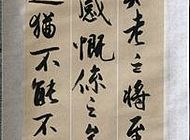 老之將至
感慨係之矣
猶不能不